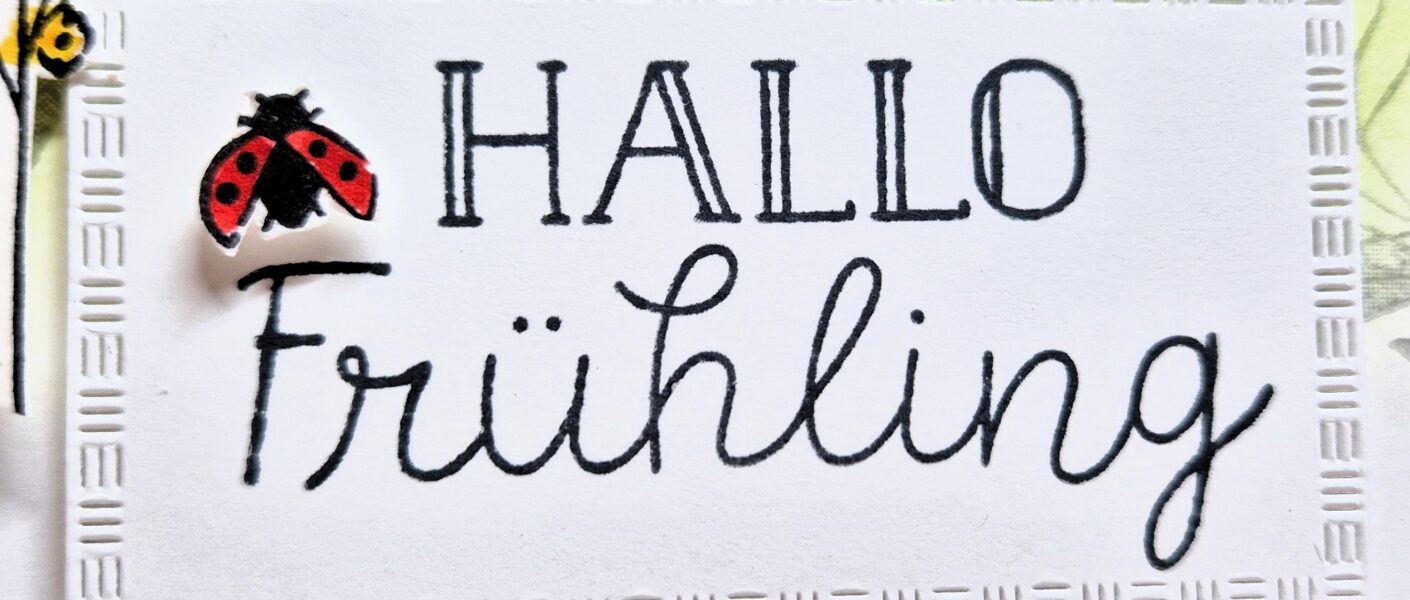 HALLO
Frühling